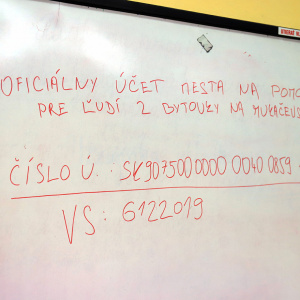 OFICIÁLNY ÚČET MESTA NA
PRE ĽUDÍ Z BYTOVKY NA
ČÍSLO Ú. SK9075000000 0040 0859
VS: 6122019